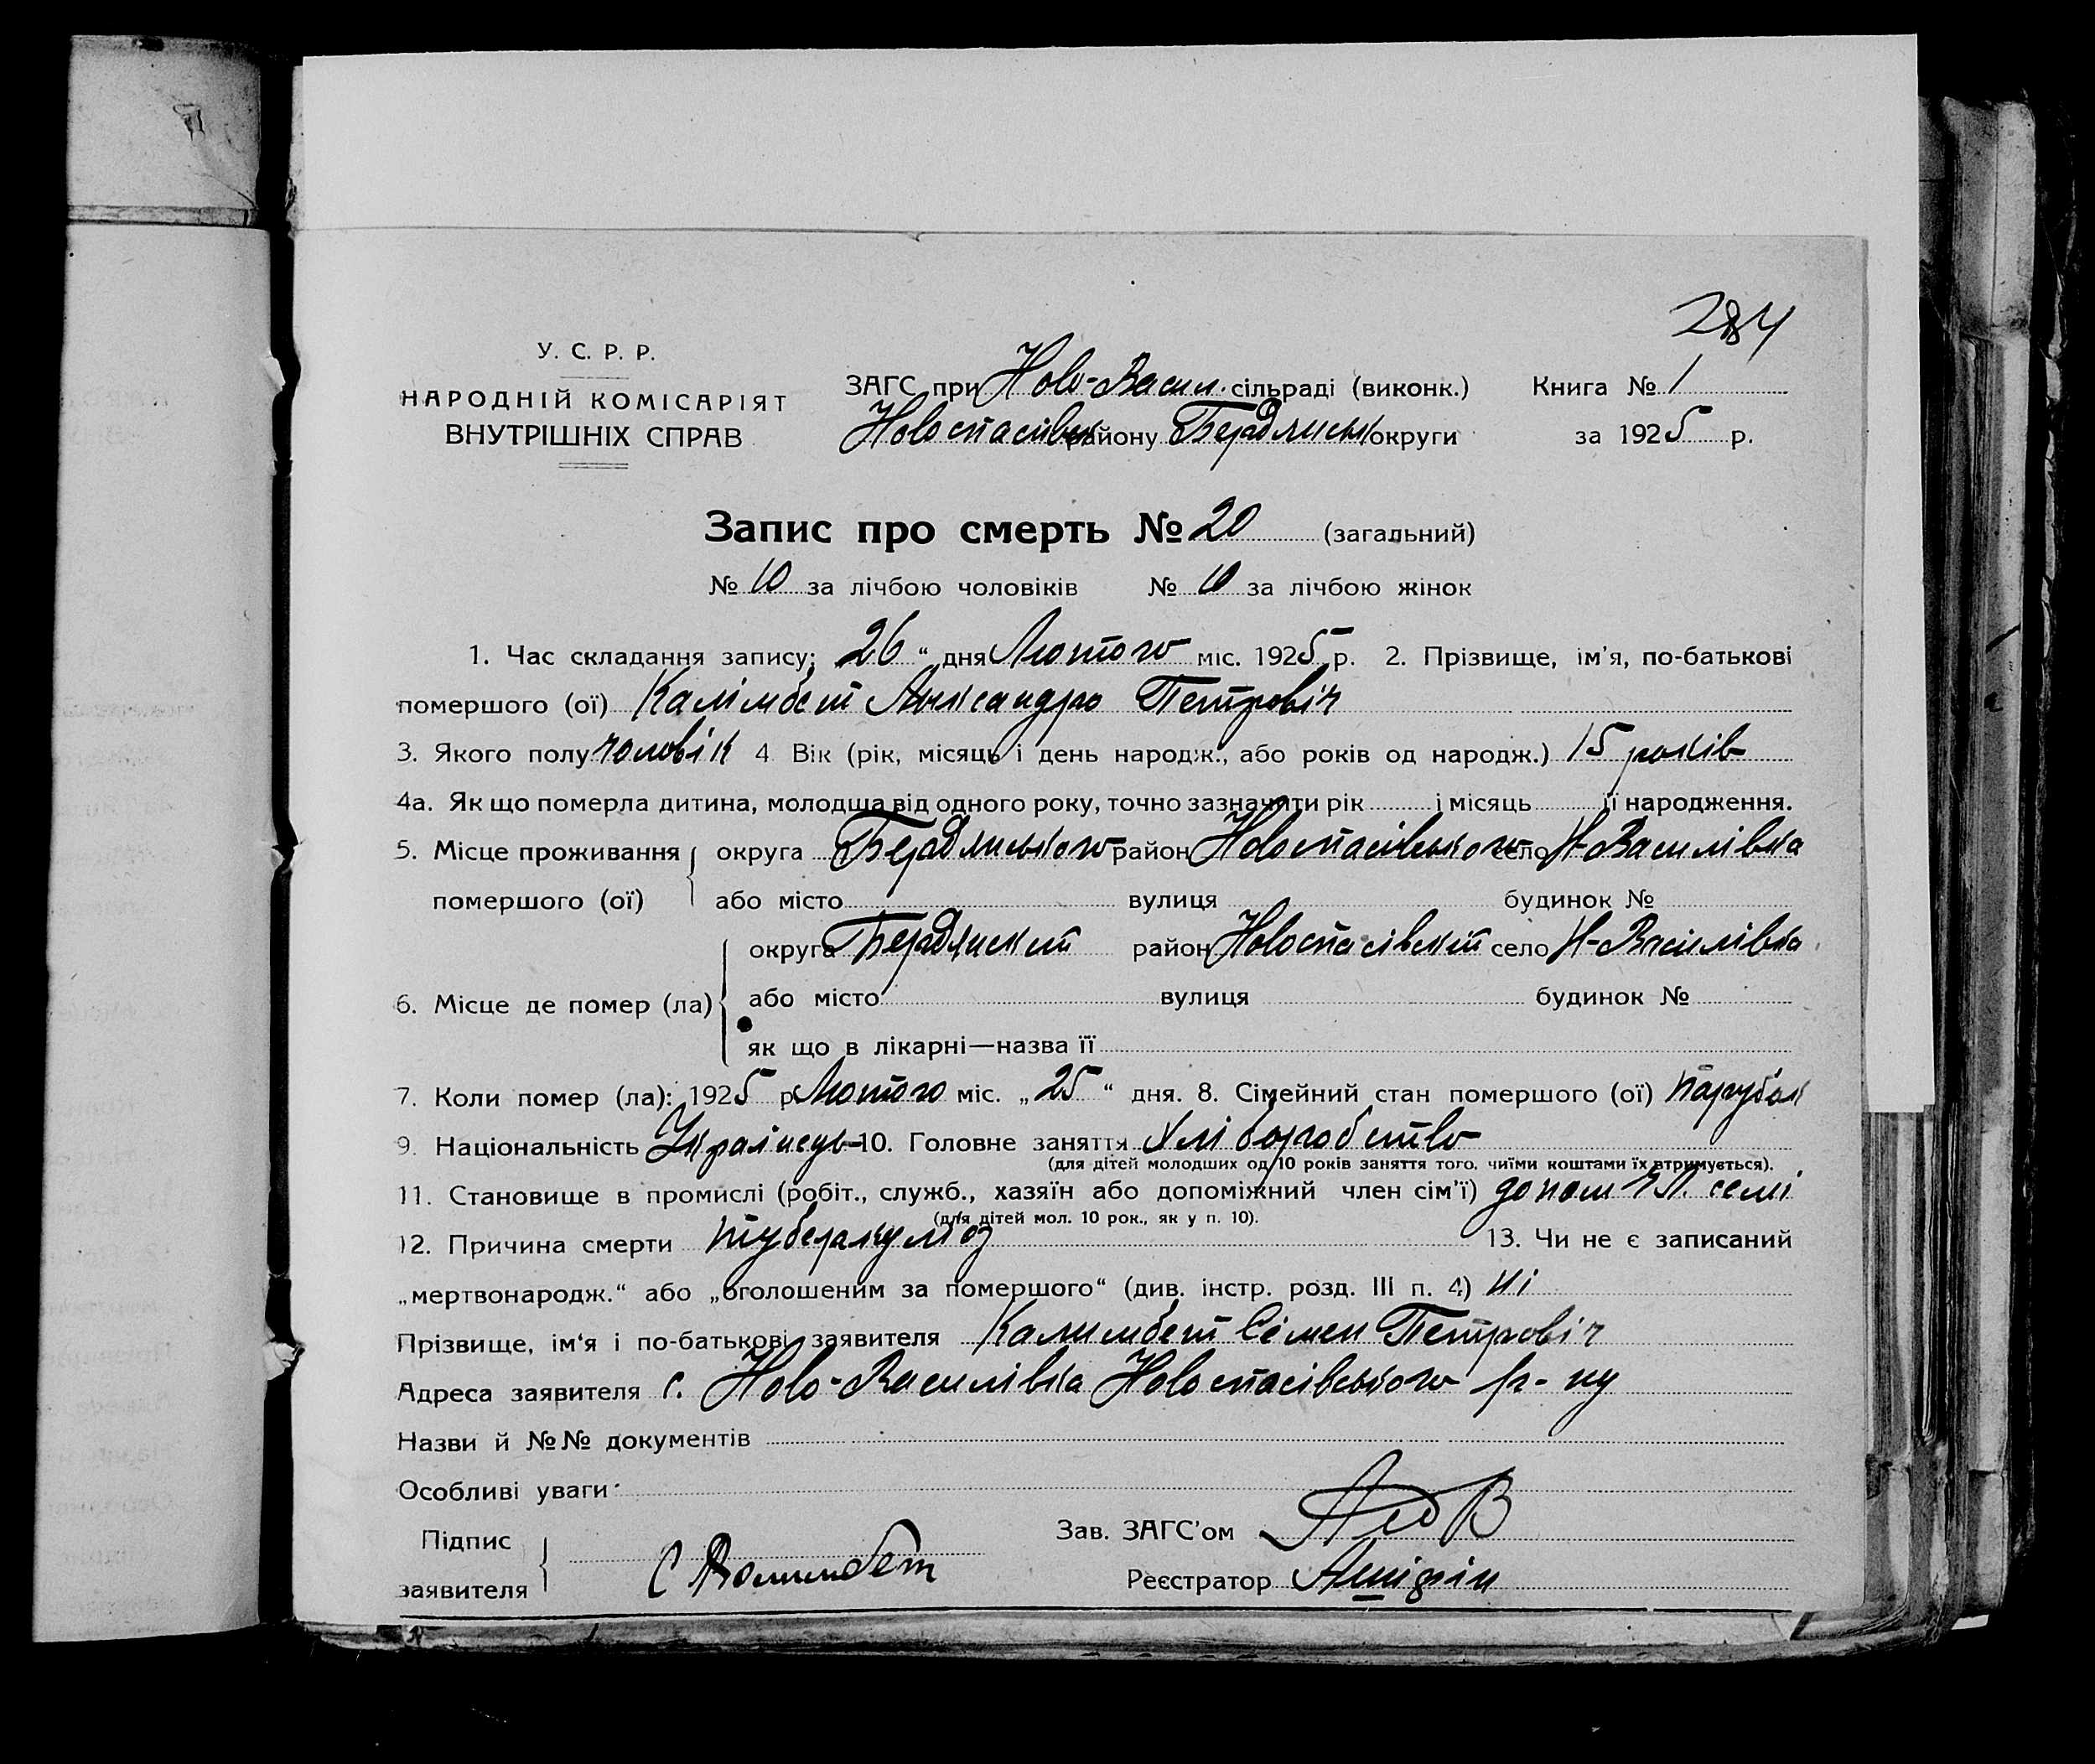 284
У. С. Р. Р.
НАРОДНІЙ КОМІСАРІЯТ
ВНУТРІШНІХ СПРАВ
ЗАГС при Ново-Васил. сільраді (виконк.) Книга № 1
Новоспасівськ району Бердянськ округи за 1925 р.
Запис про смерть № 20 (загальний)
№ 10 за лічбою чоловіків № 10 за лічбою жінок
1. Час складання запису: 26 " дня Лютого міс. 1925 р. 2. Прізвище, ім'я, по-батькові
помершого (ої) Калімбет Александро Петровіч
3. Якого полу чоловік 4 Вік (рік, місяць і день народж., або років од народж.) 15 років
4а. Як що померла дитина, молодша від одного року, точно зазначити рік і місяць її народження.
5. Місце проживання округа Бердянського район Новоспасівського село Н-Василівка
помершого (ої) або місто вулиця будинок №
округа Бердянский район Новоспасівский село Н-Василівка
6. Місце де помер (ла) або місто вулиця будинок №
як що в лікарні—назва її
7. Коли помер (ла): 1925 р Лютого міс. „ 25 " дня. 8. Сімейний стан помершого (ої) парубок
9. Національність Українець 10. Головне заняття хліборобство
(для дітей молодших од 10 років заняття того, чиїми коштами їх втримується).
11. Становище в промислі (робіт., служб., хазяїн або допоміжний член сім'ї) допом чл. семі
(для дітей мол. 10 рок., як у п. 10).
12. Причина смерти туберкульоз 13. Чи не є записаний
„мертвонародж." або „оголошеним за помершого" (див. інстр. розд. III п. 4) ні
Прізвище, ім'я і по-батькові заявителя Калимбет Семен Петровіч
Адреса заявителя с. Ново-Василівка Новоспасівського р-ну
Назви й №№ документів
Особливі уваги
Підпис
заявителя С Калимбет
Зав. ЗАГС'ом
Реєстратор